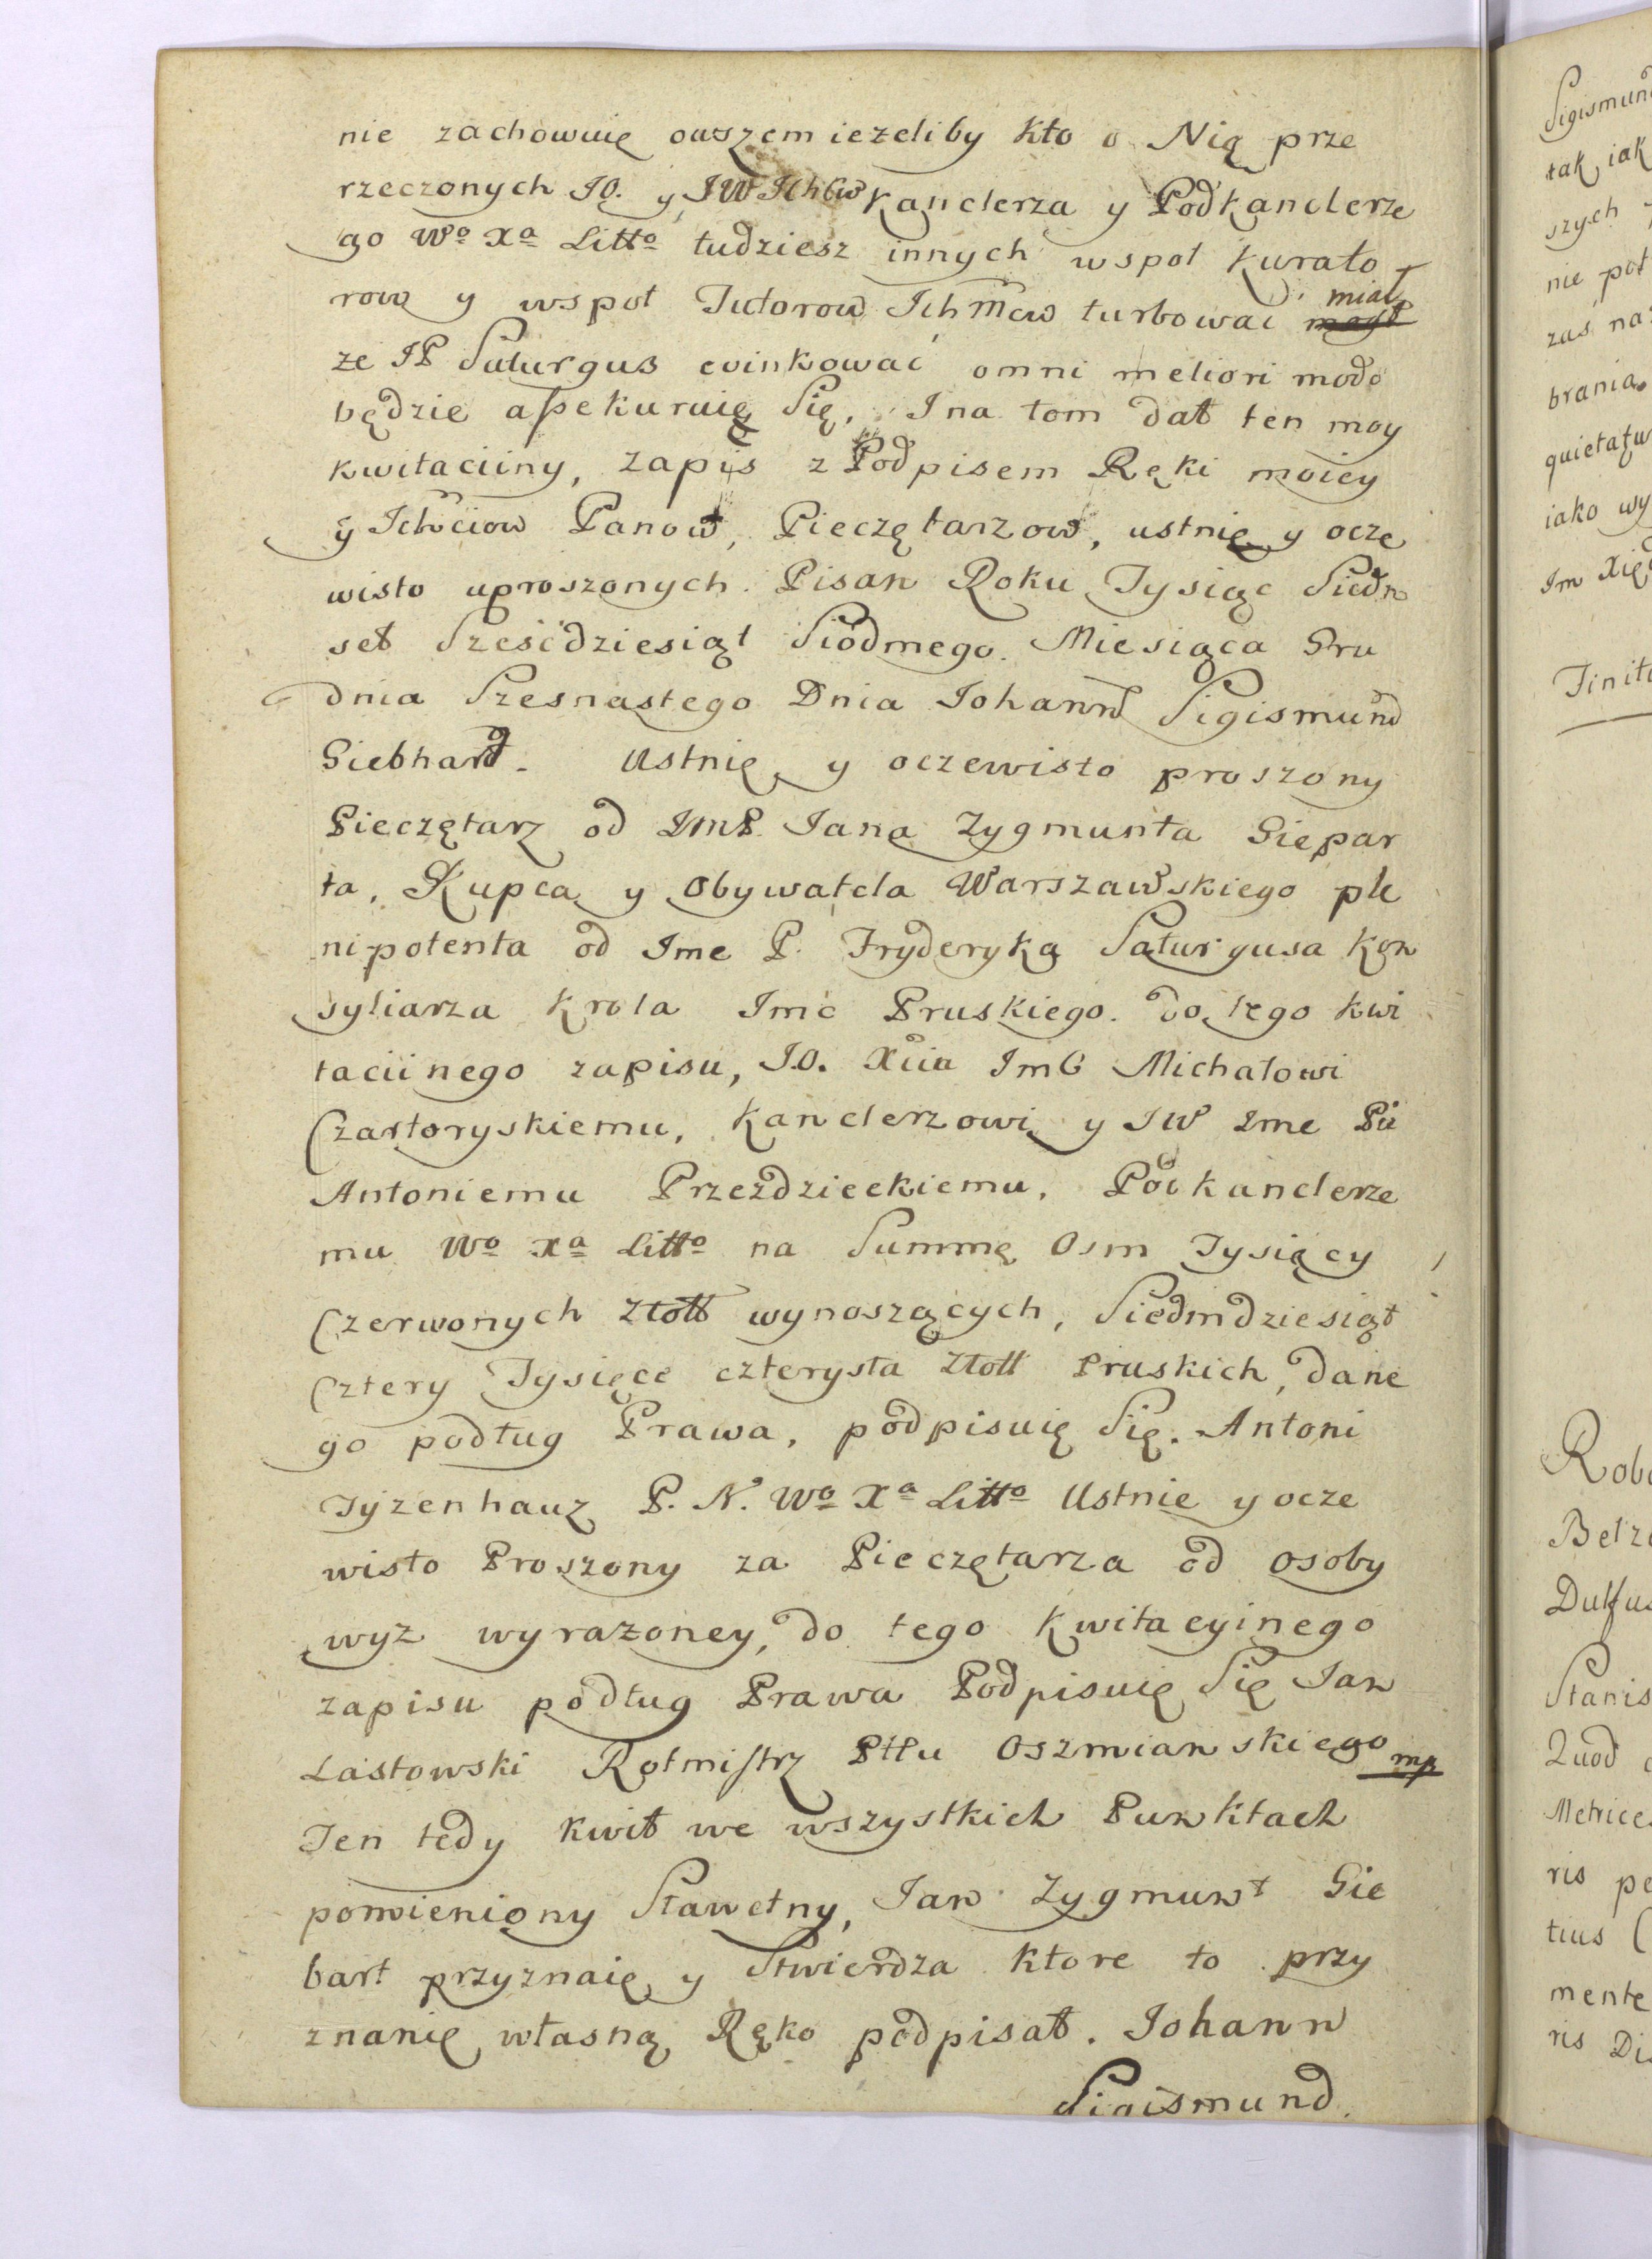 nie zachowuię owszem ieżeliby kto o Nią prze
rzeczonych JO. y JW Ichmw Kanclerza y Podkanclerze
go Wo Xa Litto tudziesz innych wspoł kurato
row y wspoł Tutorow Ichmcw turbować miał
że JP Saturgus ewinkować omni meliori modo
będzie assekuruię Się, I na tom dał ten moy
kwitaciiny, zapis z Podpisem Ręki moiey
y Ichmciow Panow, Pieczętarzow, ustnię y ocze
wisto uproszonych. Pisan Roku Tysiąc Siedm
set Sześćdziesiąt Siodmego. Miesiąca Gru
dnia Szesnastego Dnia Johann Sigismund
Giebhard. Ustnię y oczewisto proszony
Pieczętarz od JmP. Jana Zygmunta Giepar
ta, Kupca y Obywatela Warszawskiego ple
nipotenta od Jme P. Fryderyka Saturgusa Kon
syliarza Krola Jmc Pruskiego. do tego kwi
taciinego zapisu, J.O. Xciu ImC Michałowi
Czartoryskiemu, Kanclerzowi y JW Jme Pu
Antoniemu Przezdzieckiemu, Podkanclerze
mu Wo Xa Litto na Summę Osm Tysięcy
Czerwonych Złott wynoszących, Siedmdziesiąt
Cztery Tysięce czterysta Złott Pruskich, dane
go podług Prawa, podpisuię Się. Antoni
Tyzenhauz P. N. Wo Xa Litto Ustnie y ocze
wisto Proszony za Pieczętarza od osoby
wyż wyrażoney, do tego Kwitacyinego
zapisu podług Prawa Podpisuię Się Jan
Lastowski Rotmistrz Pttu Oszmianskiego mp
Ten tedy kwit we wszystkich Punktach
pomieniony Sławetny, Jan Zygmunt Gie
bart przyznaię y Stwierdza ktore to przy
znanię własną Ręko podpisał. Johann
Sigismund.
Sigismund
tak iak
szych
nie
zaś
brania.
iako wy
Stanis
Quod
ris
mente
ris